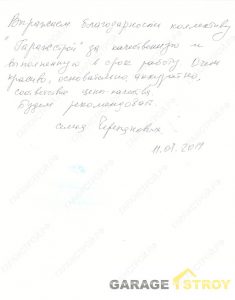 Выражаем благодарность коллективу
"Гаражстрой" за качественную и
выполненную в срок работу. Очень
красиво, основательно, аккуратно,
соответствие цена-качество.
Будем рекомендовать.
семья
11.09.2017
GARAGE STROY